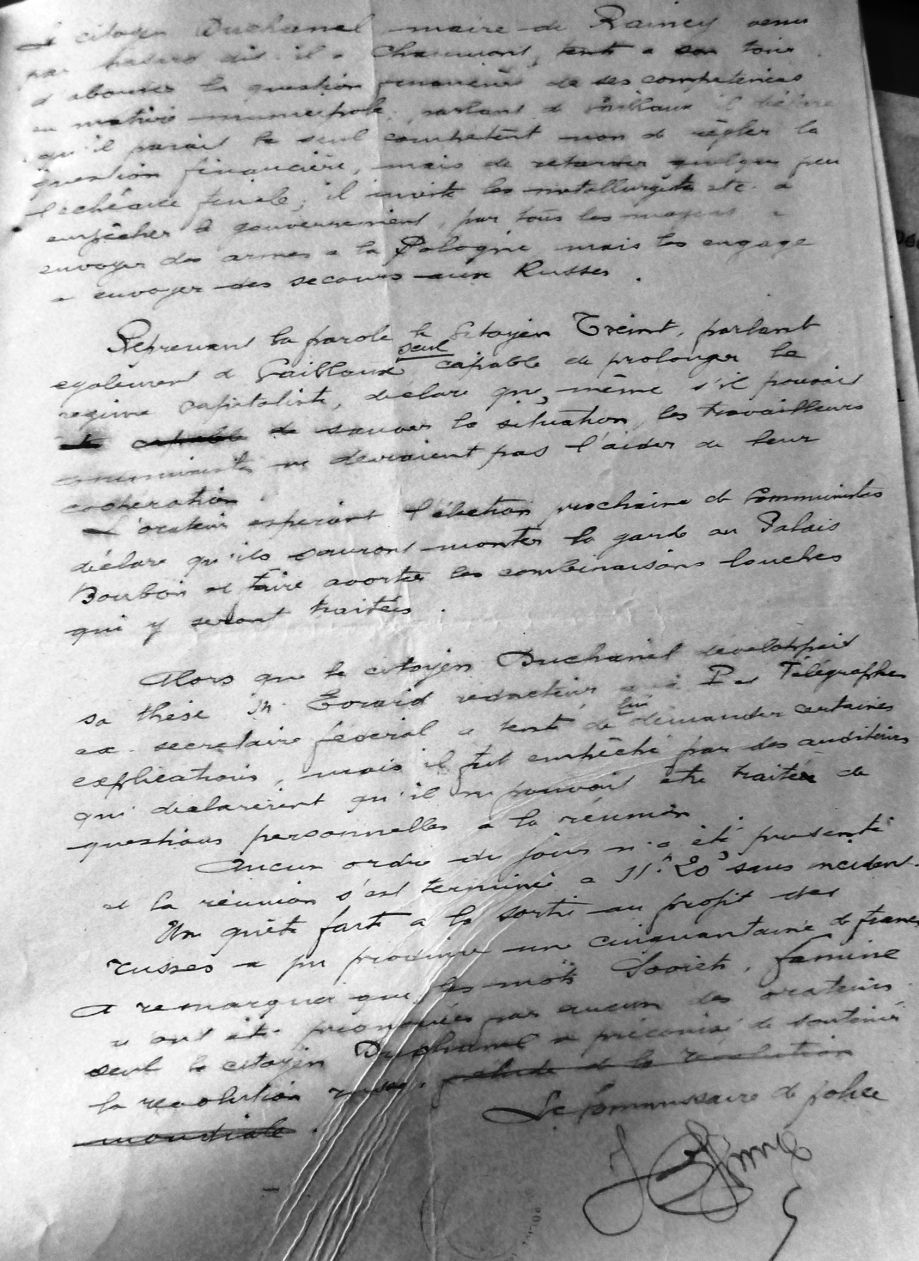 Le citoyen Duchanel maire de Raincy venu
par hasard dit-il a Chaumont, tente a son tour
d'abourder la question financière de ses compétences
en matière municipale, parlant de Caillaux il déclare
qu'il parait le seul compétent non de régler la
question financière, mais de retarder quelque peu
l'échéance finale; il invite les metallurgiste etc. a
empêcher le gouvernement, par tous les moyens a
envoyer des armes a la Pologne, mais les engage
a envoyer des secours aux Russes.
Reprenant la parole le Citoyen Treint, parlant
également de Caillaux seul capable de prolonger le
régime capitaliste, déclare que, même s'il pouvait
capable de sauver la situation, les travailleurs
communistes ne devraient pas l'aider de leur
coopération.
L'orateur espérant l'élection prochaine de Communistes
déclare qu'ils sauront monter la garde au Palais
Bourbon et faire avorter les combinaisons louches
qui y seront traitées.
Alors que le citoyen Duchanel développait
sa thèse M. redacteur Télégraphe
ex-secrétaire fédéral a tenté de lui demander certaines
explications, mais il fut empêché par des auditeurs
qui déclarèrent qu'il ne pouvait être traitée de
questions personnelles a la réunion
Aucun ordre du jour n'a été présenté
et la réunion s'est terminée a 11h 20 sans incident.
Un quête faite a la sortie au profit des
russes a pu produire une cinquantaine de francs
A remarquer que les mots Soviets, famine
n'ont été prononcés par aucun des orateurs
seul le citoyen Duchanel a préconisé de soutenir
la revolution russe. prélude de la revolution
mondiale.
Le Commissaire de police